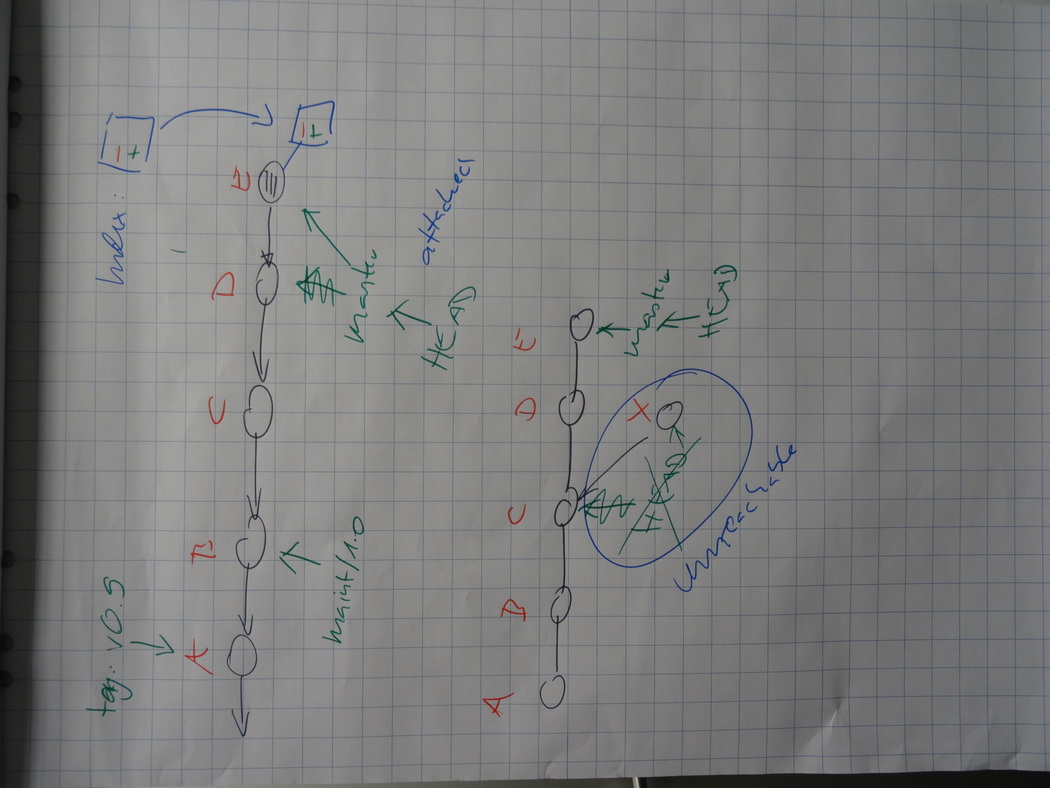 tag: v0.9
Index:
-
+
A B C D E
-
+
maint/1.0
master
HEAD
attached
A B C D E
master
X
HEAD
HEAD
unreachable